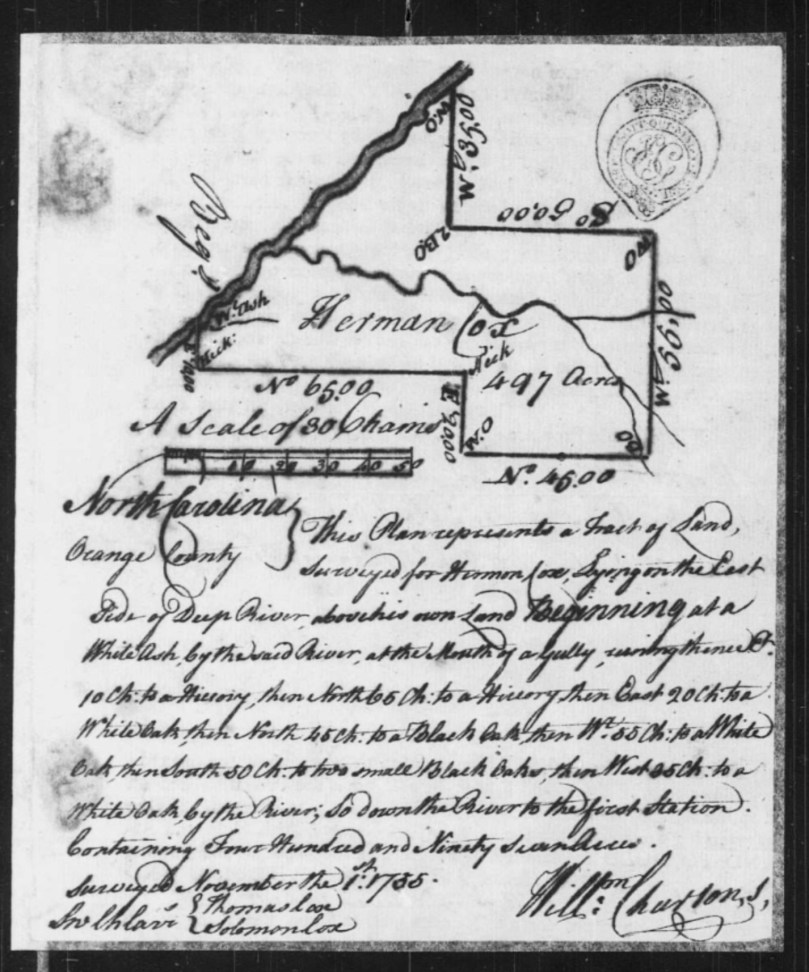 Beg:g
W.O
W.t 35,00
2.B.O
So 50.00
W O
W.t 55,00
BO
No 45.00
W.O
E 20.00
Hick
No 65.00
Hick:
W: Ash
10,00
Herman Cox
497 Acres
A Scale of 30 Chains
10 20 30 40 50
North Carolina
Orange County
This Plan represents a Tract of Land,
Surveyed for Hermon Cox, Lying on the East
Side of Deep River, above his own Land Beginning at a
White Ash, by the said River, at the Mouth of a gully, runing thence Et.
10 Ch: to a Hicory, then North 65 Ch: to a Hicory then East 20 Ch: to a
White Oak, then North 45 Ch: to a Black Oak, then Wt. 55 Ch: to a White
Oak then South 50 Ch: to two small Black Oaks, then West 35 Ch: to a
White Oak by the River, So down the River to the first Station.
Containing Four Hundred and Ninety Seven Acres.
Surveyed November the 1st: 1755.
Thomas Cox
Solomon Cox
Willm: Churton, S,